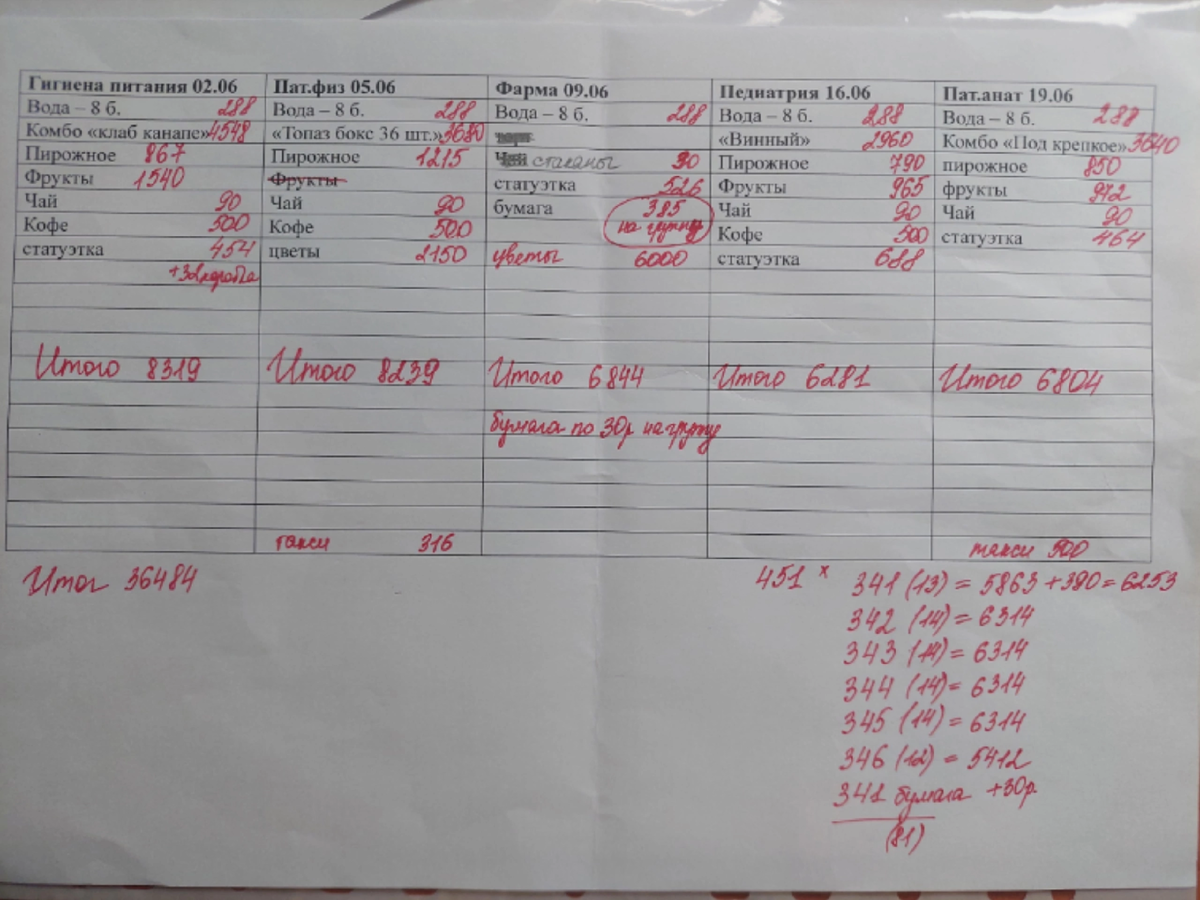 Гигиена питания 02.06 Пат.физ 05.06 Фарма 09.06 Педиатрия 16.06 Пат.анат 19.06
Вода – 8 б. 288 Вода – 8 б. 288 Вода – 8 б. 288 Вода – 8 б. 288 Вода – 8 б. 288
Комбо «клаб канапе» 4548 «Топаз бокс 36 шт.» 3680 «Винный» 2960 Комбо «Под крепкое» 3640
Пирожное 867 Пирожное 1215 Чай стаканы 30 Пирожное 790 пирожное 850
Фрукты 1540 Фрукты статуэтка 526 Фрукты 965 фрукты 972
Чай 90 Чай 90 бумага 385 на группу Чай 90 Чай 90
Кофе 500 Кофе 500 Кофе 500 статуэтка 464
статуэтка 454 цветы 2150 цветы 6000 статуэтка 688
+32 коробка
Итого 8319 Итого 8239 Итого 6844 Итого 6281 Итого 6804
бумага по 30р на группу
такси 316 такси 500
Итог 36484
451 х 341 (13) = 5863 +390 = 6253
342 (14) = 6314
343 (14) = 6314
344 (14) = 6314
345 (14) = 6314
346 (12) = 5412
341 бумага +30р
(81)